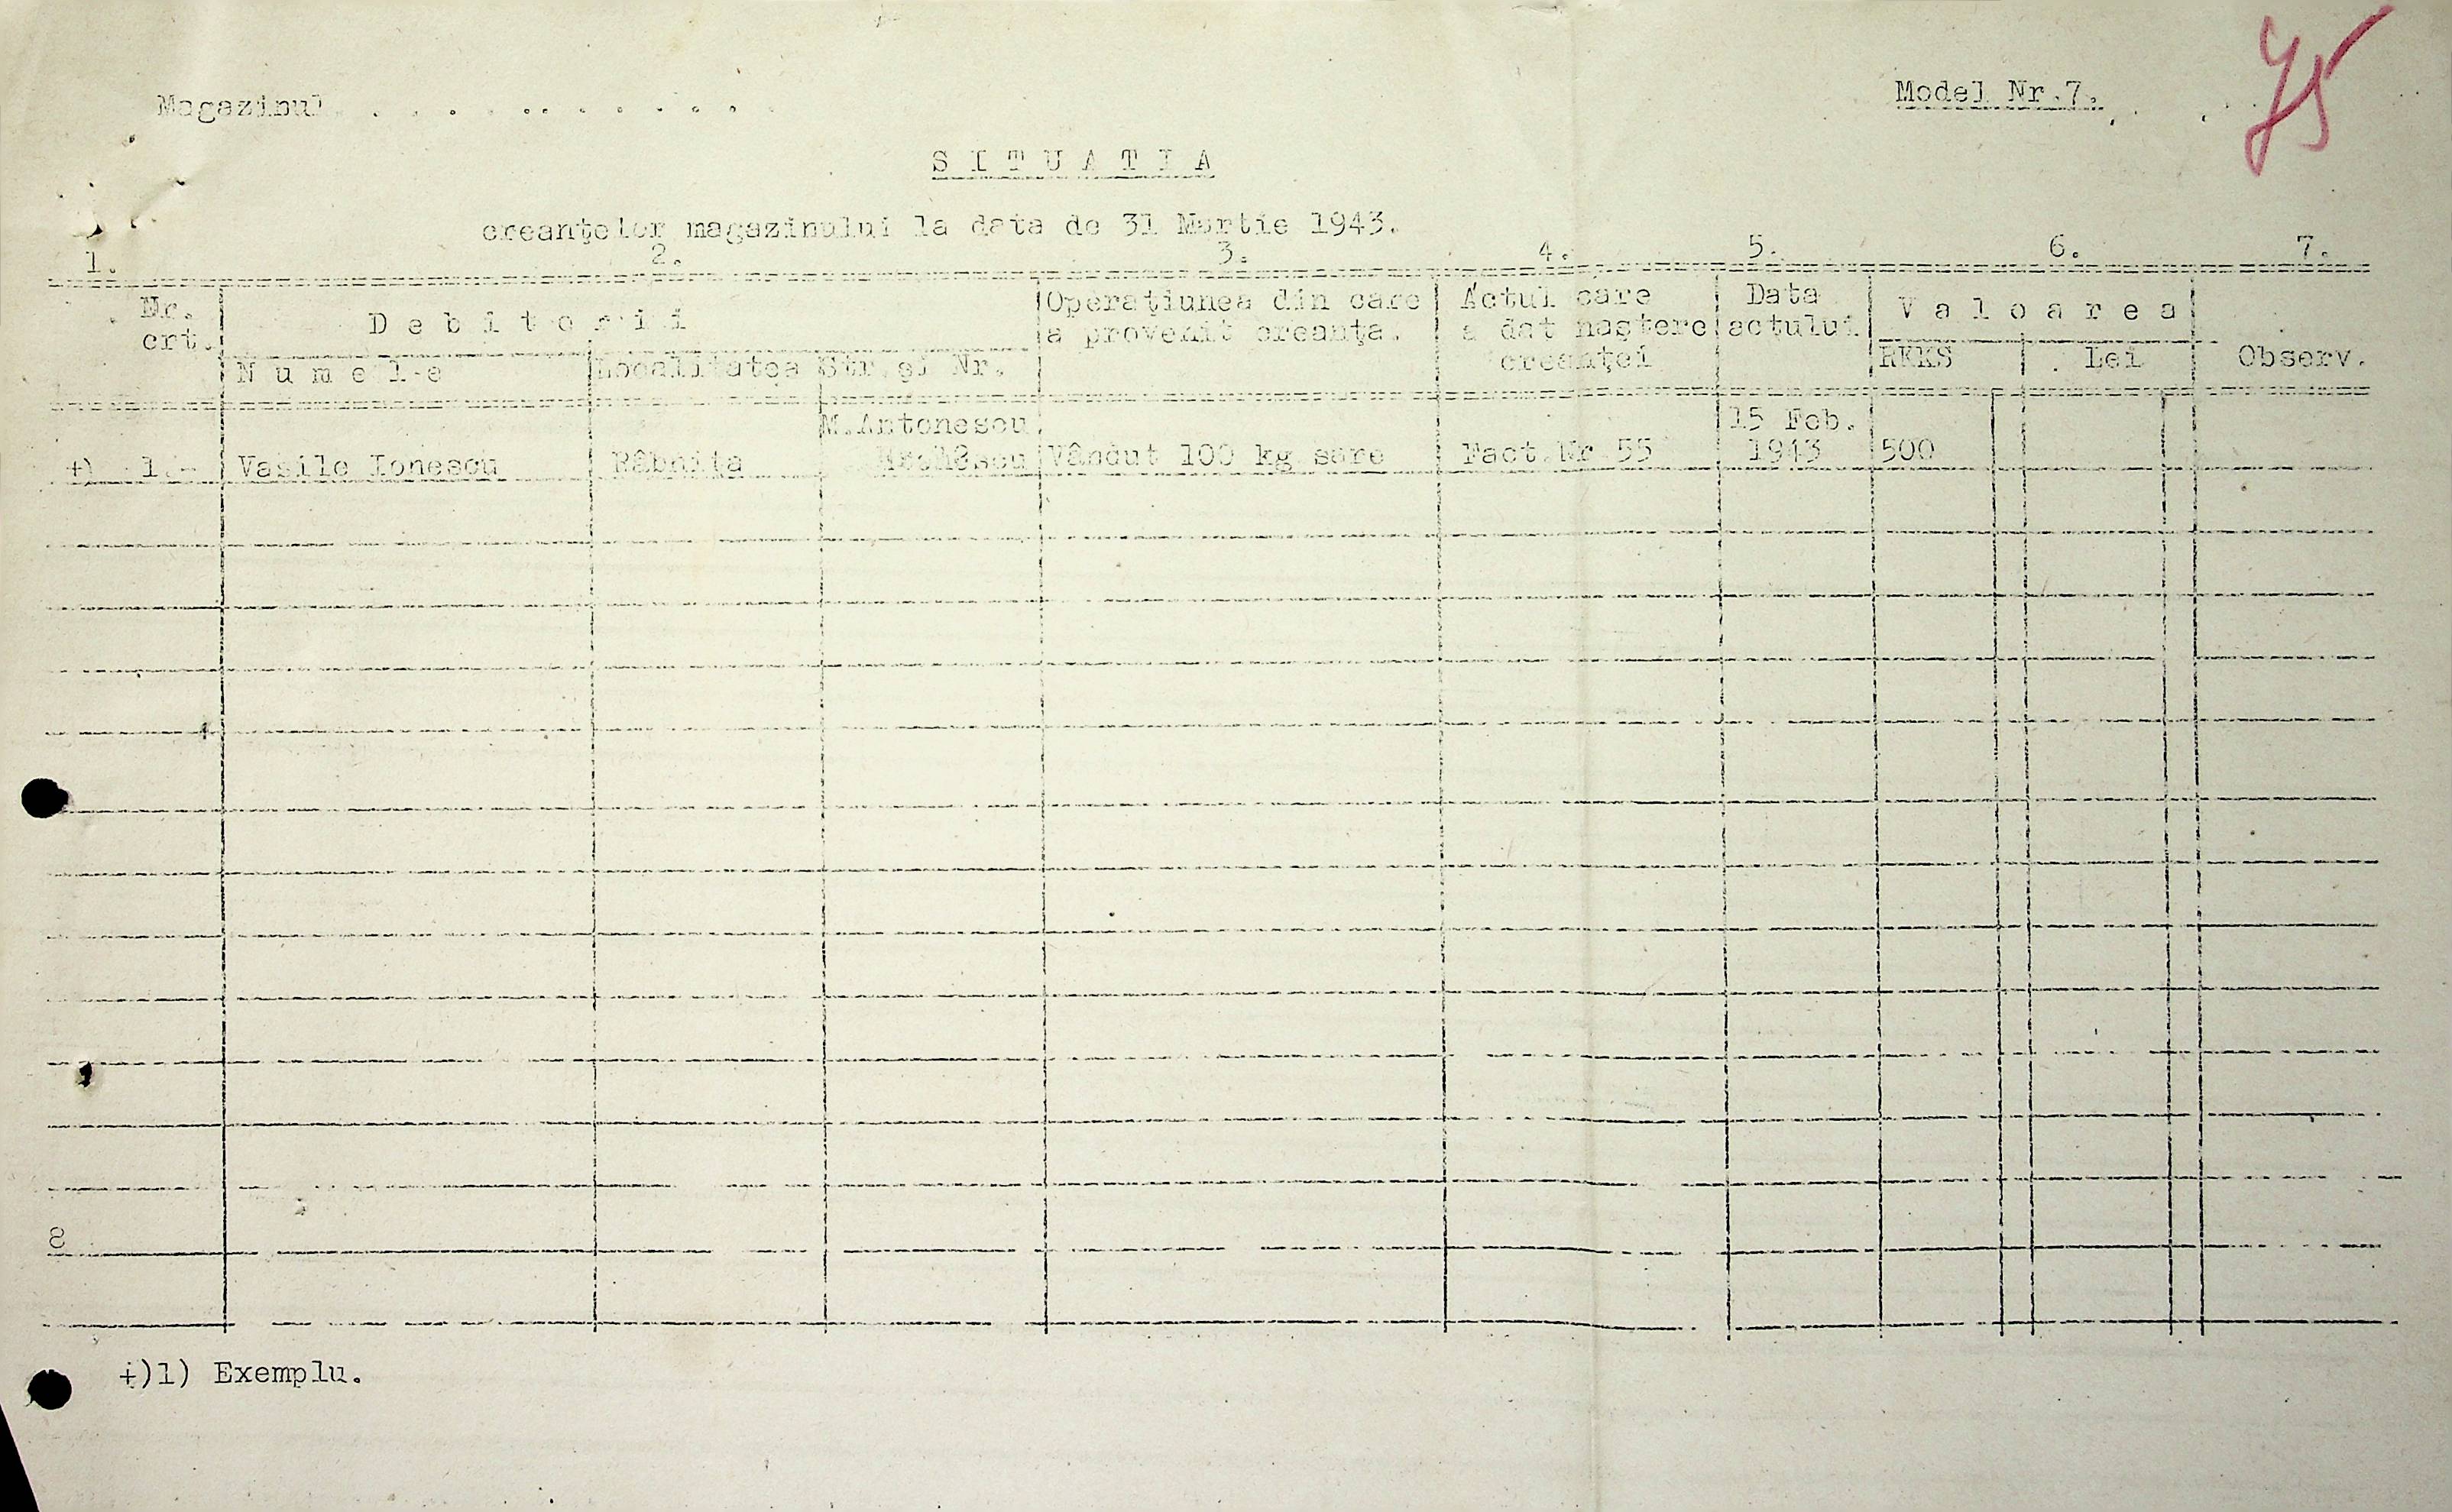 Magazinul. . . . . .. . . . . . .
Model Nr.7.
75
S I T U A T I A
creanţelor magazinului la data de 31 Martie 1943.
1. 2. 3. 4. 5. 6. 7.
Nr. crt. D e b i t o r i i Operaţiunea din care a provenit creanţa. Actul care a dat naştere creanţei Data actului V a l o a r e a Observ.
N u m e l e Localitatea Str.şi Nr. RKKS Lei
+) 1.- Vasile Ionescu Râbniţa M.Antonescu Vândut 100 kg sare Fact.Nr 55 15 Feb. 1943 500
8
+)1) Exemplu.